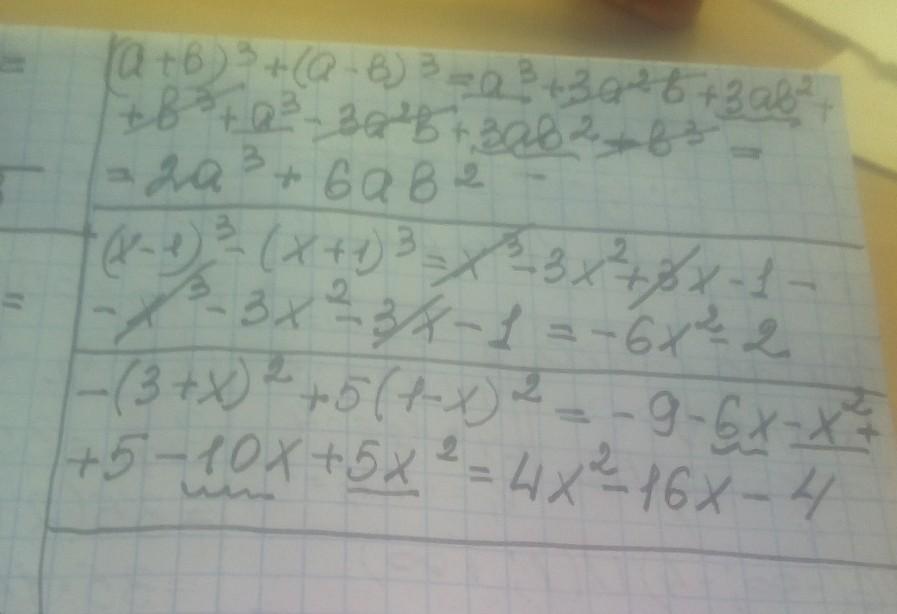 (a+b)³+(a-b)³=a³+3a²b+3ab²+
+b³+a³-3a²b+3ab²-b³=
=2a³+6ab²
(x-1)³-(x+1)³=x³-3x²+3x-1-
-x³-3x²-3x-1=-6x²-2
-(3+x)²+5(1-x)²=-9-6x-x²+
+5-10x+5x²=4x²-16x-4
=
=